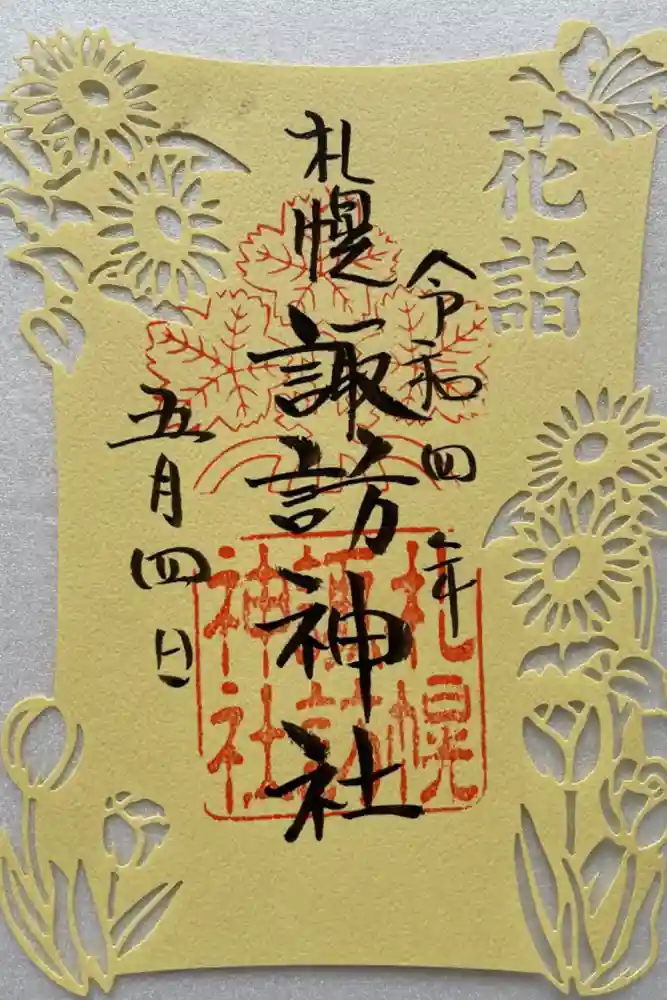 花詣
令和四年
札幌
諏訪神社
五月四日
札幌
諏訪
神社